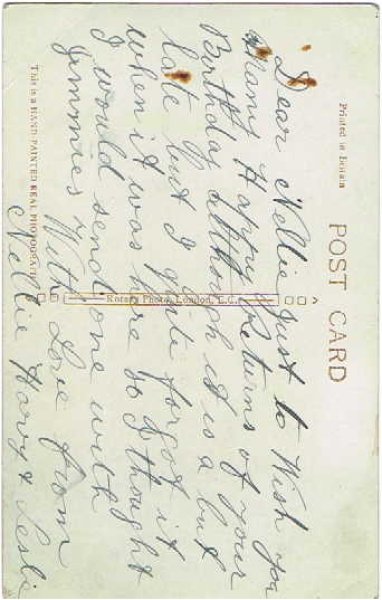 Printed in Britain
POST CARD
Rotary Photo, London, E.C.
This is a HAND PAINTED REAL PHOTOGRAPH
Dear Nellie Just to Wish you
Many Happy Returns of your
Birthday although it is a bit
late but I quite forgot it
when it was here so I thought
I would send one with
Jimmies With Love from
Nellie Harry & Lesli